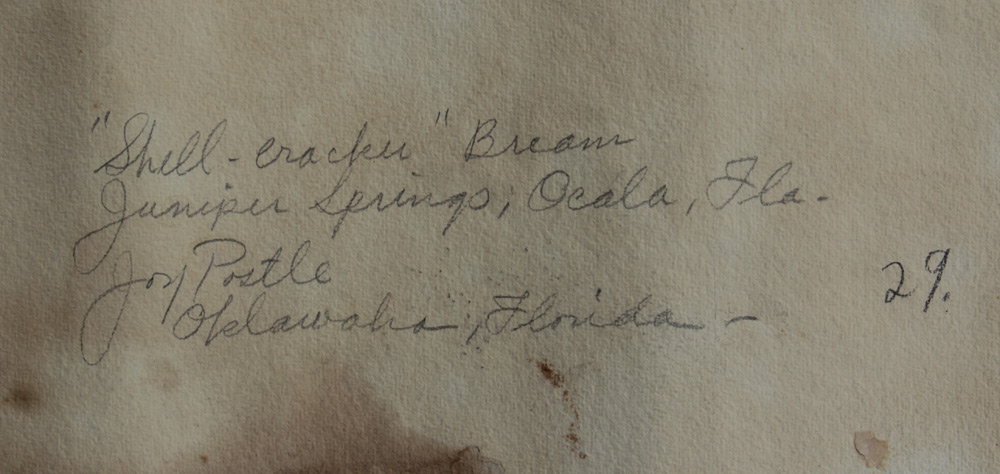 "Shell-cracker" Bream
Juniper Springs, Ocala, Fla.
Joy Postle
Oklawaha, Florida -
29.